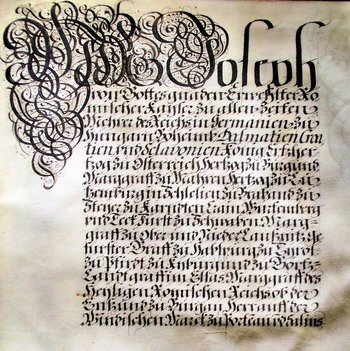 Wir Joseph
von Gottes gnaden Erwehlter Rö-
mischer Kaiser zu allen Zeiten
Mehrer des Reichs in Germanien zu
Hungarn Böheimb Dalmatien Croa-
tien und Sclavonien König Ertzher-
tzog zu Österreich Hertzog zu Burgund
Marggraff zu Mähren Hertzog zu Lu-
tzemburg in Schlesien zu Braband zu
Steyer zu Kärndten Crain Würtenberg
und Teck Fürst zu Schwaben Marg-
graff zu Ober und Nieder Laußnitz Ge-
fürsteter Graff zu Habspurg zu Tyrol
zu Pfirdt zu Kyburg und zu Görtz
Landtgraff in Elsas Marggraff des
Heyligen Römischen Reichs ob der
Ennß und zu Burgau Herr auff der
Windischen Marck zu Portenau und Salins